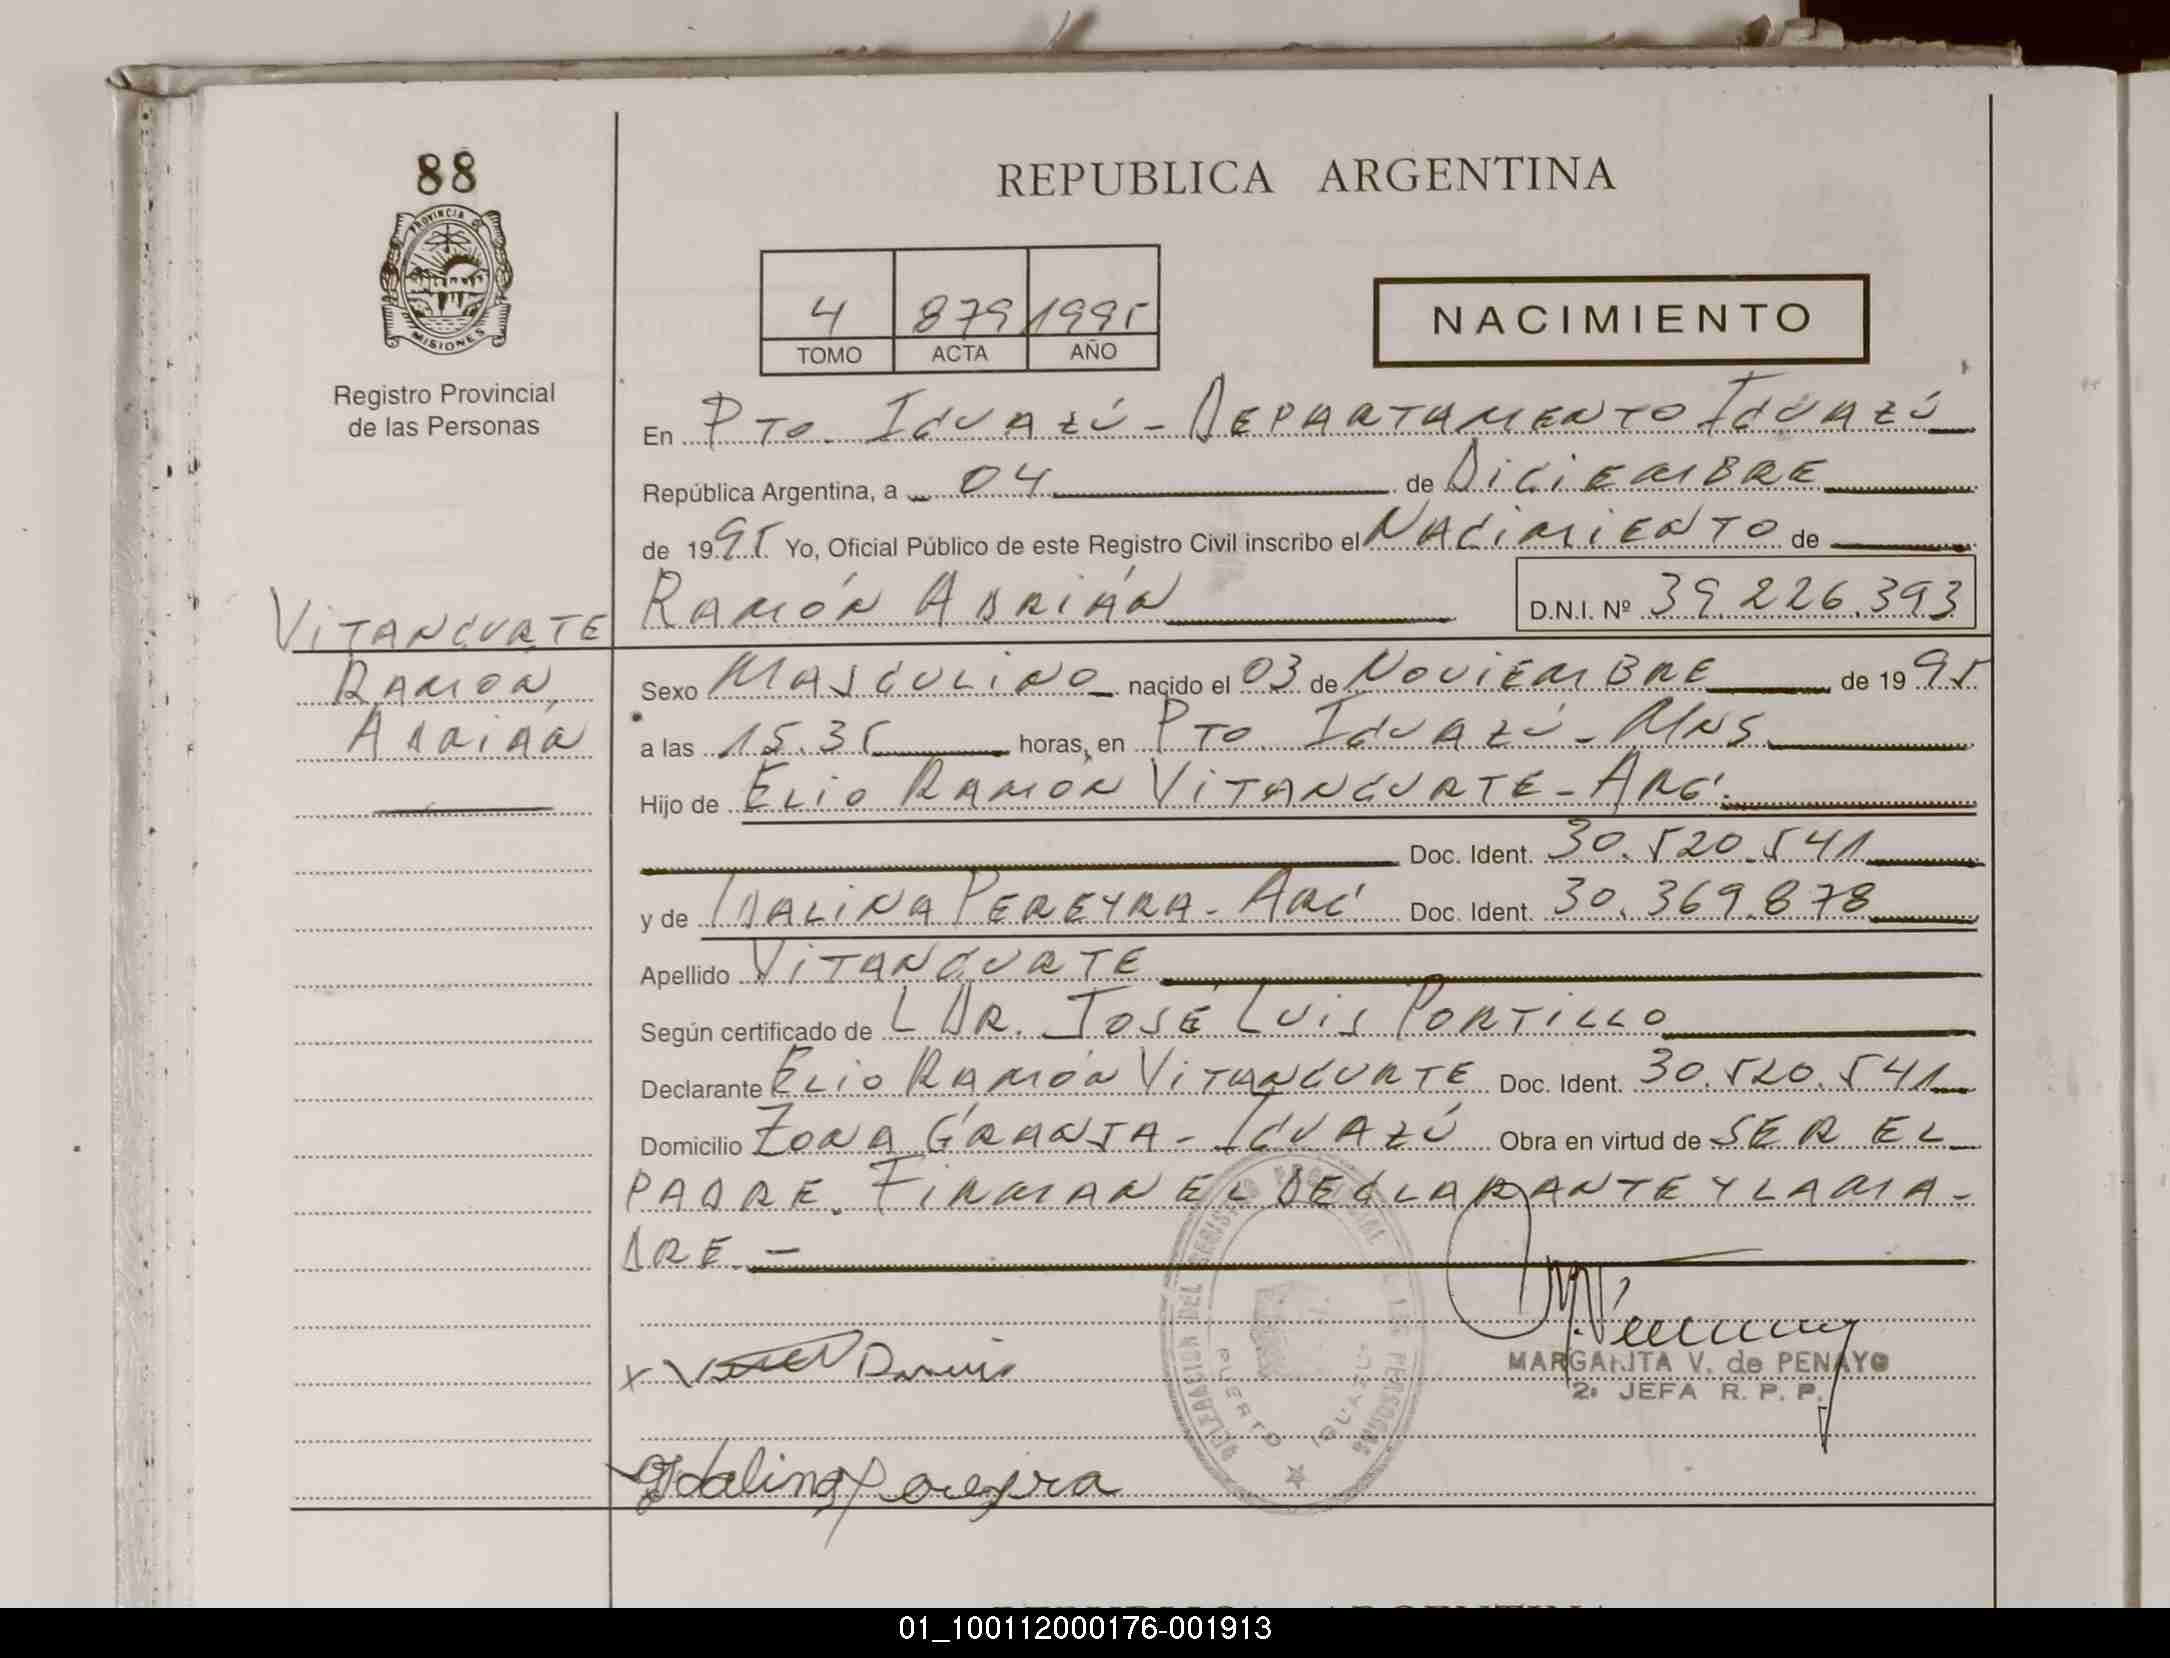 88
PROVINCIA DE
MISIONES
Registro Provincial
de las Personas
REPUBLICA ARGENTINA
4 879 1995
TOMO ACTA AÑO
NACIMIENTO
En Pto. Iguazú - Departamento Iguazú
República Argentina, a 04 de Diciembre
de 1995 Yo, Oficial Público de este Registro Civil inscribo el Nacimiento de
Ramón Adrián D.N.I. Nº 39.226.393
Vitangurte
Ramón
Adrián
Sexo Masculino nacido el 03 de Noviembre de 1995
a las 15.35 horas, en Pto. Iguazú - Mns.
Hijo de Elio Ramón Vitangurte - Arg.
Doc. Ident. 30.520.541
y de Idalina Pereyra - Arg Doc. Ident. 30.369.878
Apellido Vitangurte
Según certificado de L Dr. José Luis Portillo
Declarante Elio Ramón Vitangurte Doc. Ident. 30.520.541
Domicilio Zona Granja - Iguazú Obra en virtud de ser el
padre. Firman el declarante y la ma-
dre. -
DELEGACION DEL REGISTRO PROVINCIAL DE LAS PERSONAS
PUERTO IGUAZU
MARGARITA V. de PENAYO
2º JEFA R. P. P.
x
Idalina Pereyra
01_100112000176-001913